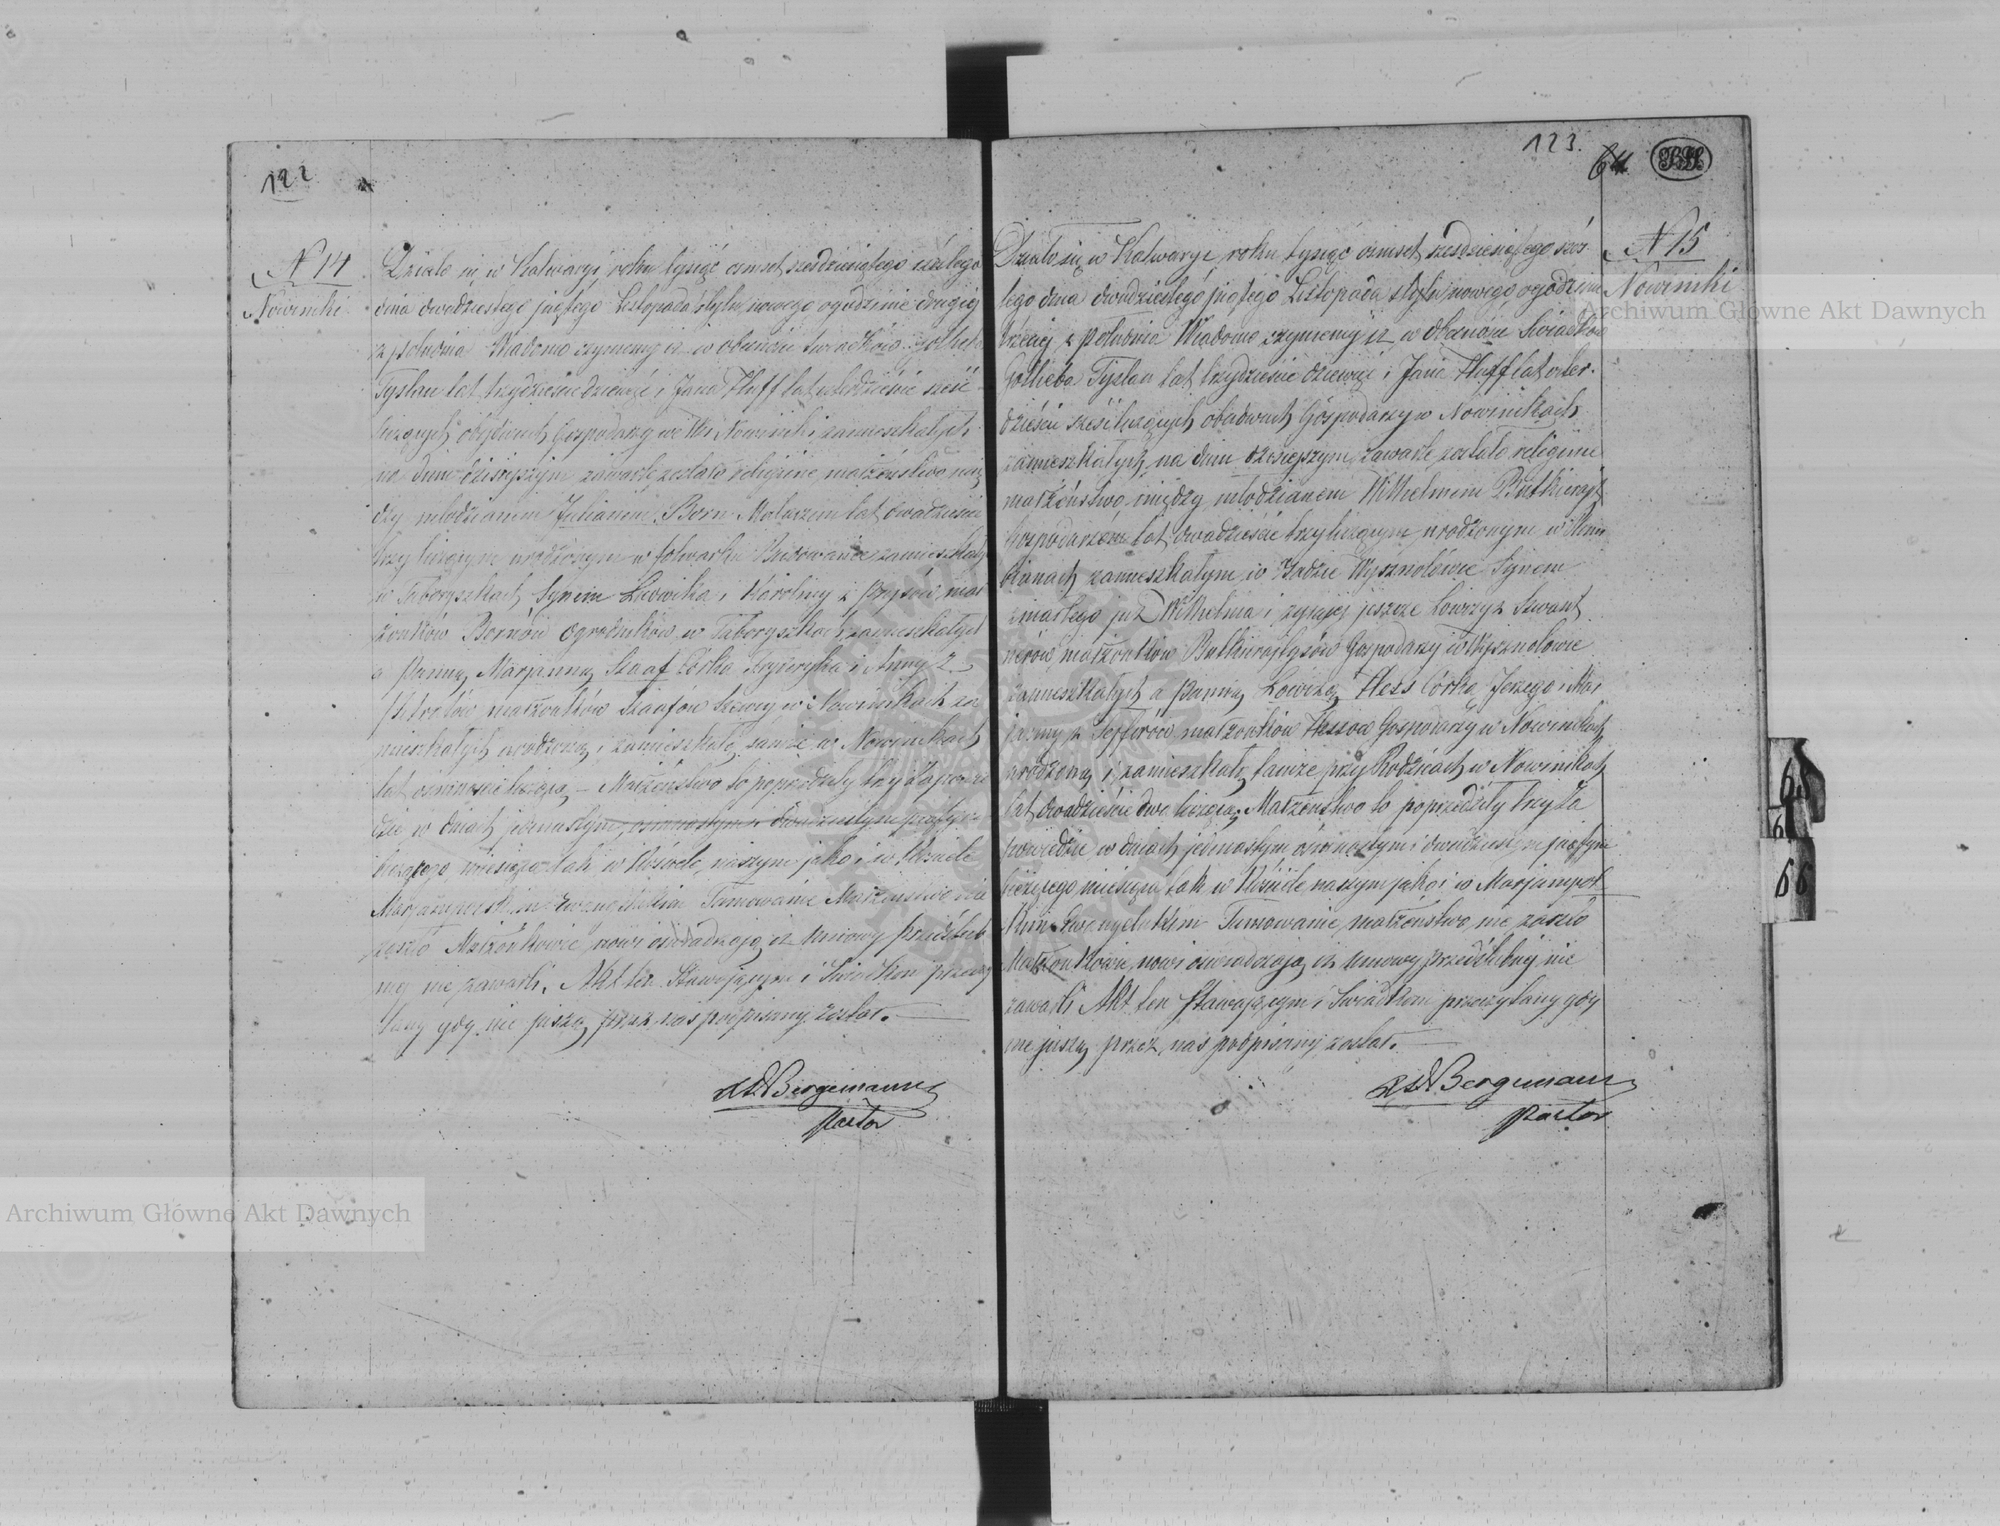 122
N 14
Nowiniki
Działo się w Kalwaryi roku tysiąc ośmset sześdziesiątego szóstego
dnia dwudziestego piątego Listopada stylu nowego o godzinie drugiej
z południa Wiadomo czynemy iż w obecności Swiadków
Tyslau lat trzydzieście dziewięć i Jana Haff lat czterdzieście sześć
liczących obydwuch Gospodarzy we Wsi Nowiniki zamieszkałych
na dniu dzisiejszym zawarte zostało religijne małżeństwo mię
dzy młodzianem Julianem Born lat dwadzieście
trzy liczącym urodzonym w folwarku zamieszkały
w Taboryszkach Synem Ludwika i Karoliny z mał
żonków Bornów Ogrodników w Taboryszkach zamieszkałych
a Panną Marjanną Szaaf Córką Fryderyka i Anny z
małżonków Szaafów w Nowinikach za
mieszkałych urodzoną i zamieszkałą tamże w Nowinikach
lat ośmnaście liczącą – Małżeństwo to poprzedziły trzy zapowie
dzie w dniach jedenastym, ośmnastym i dwudziestym piątym
bieżącego miesiąca tak w Kościele naszym jako i w Kościele
Marjampolskim Ewangelickim Tamowanie Małżeństwa nie
zaszło Małżonkowie nowi oświadczają iż Umowy Przedślub
nej nie zawarli. Akt ten Stawającym i Swiadkom przeczy
tany gdy nie piszą przez nas podpisany został.
Bergemann
Pastor
123.
64
N 15
Nowiniki
Działo się w Kalwaryi roku tysiąc ośmset sześdziesiątego szós
tego dnia dwudziestego piątego Listopada stylu nowego o godzinie
trzeciej z południa Wiadomo czynemy iż w obecności Swiadków
Gottlieba Tyslau lat trzydzieście dziewięć i Jana Haff lat czter.
dzieście sześć liczących obudwuch Gospodarzy w Nowinikach
zamieszkałych na dniu dzisiejszym zawarte zostało religijne
małżeństwo między młodzianem Wilhelmem Butkierajt
Gospodarzem lat dwadzieście trzy liczącym urodzonym w
zamieszkałym w Wysznolówie Synem
zmarłego już Wilhelma i żyjącej jeszcze Lowizy z Szwant
nerów małżonków Gospodarzy w Wysznolowie
zamieszkałych a Panną Lowizą Hess Córką Jerzego i Mar
janny z małżonków Hessów Gospodarzy w Nowinikach
urodzoną i zamieszkałą tamże przy Rodzicach w Nowinikach
lat dwadzieście dwa liczącą Małżeństwo to poprzedziły trzy Za
powiedzie w dniach jedenastym ośmnastym i dwudziestym piątym
bieżącego miesiąca tak w Kościele naszym jako i w Marjampol
skim Ewangelickim Tamowanie małżeństwa nie zaszło
Małżonkowie nowi oświadczają iż Umowy przedślubnej nie
zawarli Akt ten Stawającym i Swiadkom przeczytany gdy
nie piszą przez nas podpisany został.
Bergemann
Pastor
65
66
Archiwum Główne Akt Dawnych
Archiwum Główne Akt Dawnych